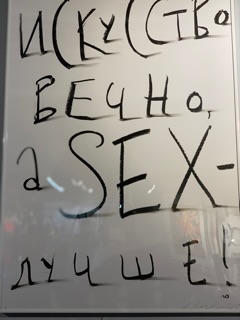 ИСКУССТВО
ВЕЧНО,
а SEX-
ЛУЧШЕ!